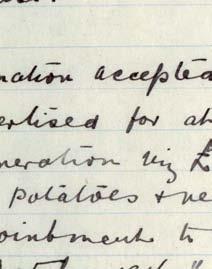 nation accepted
ertised for at
neration viz £
potatoes & ve
ointment to